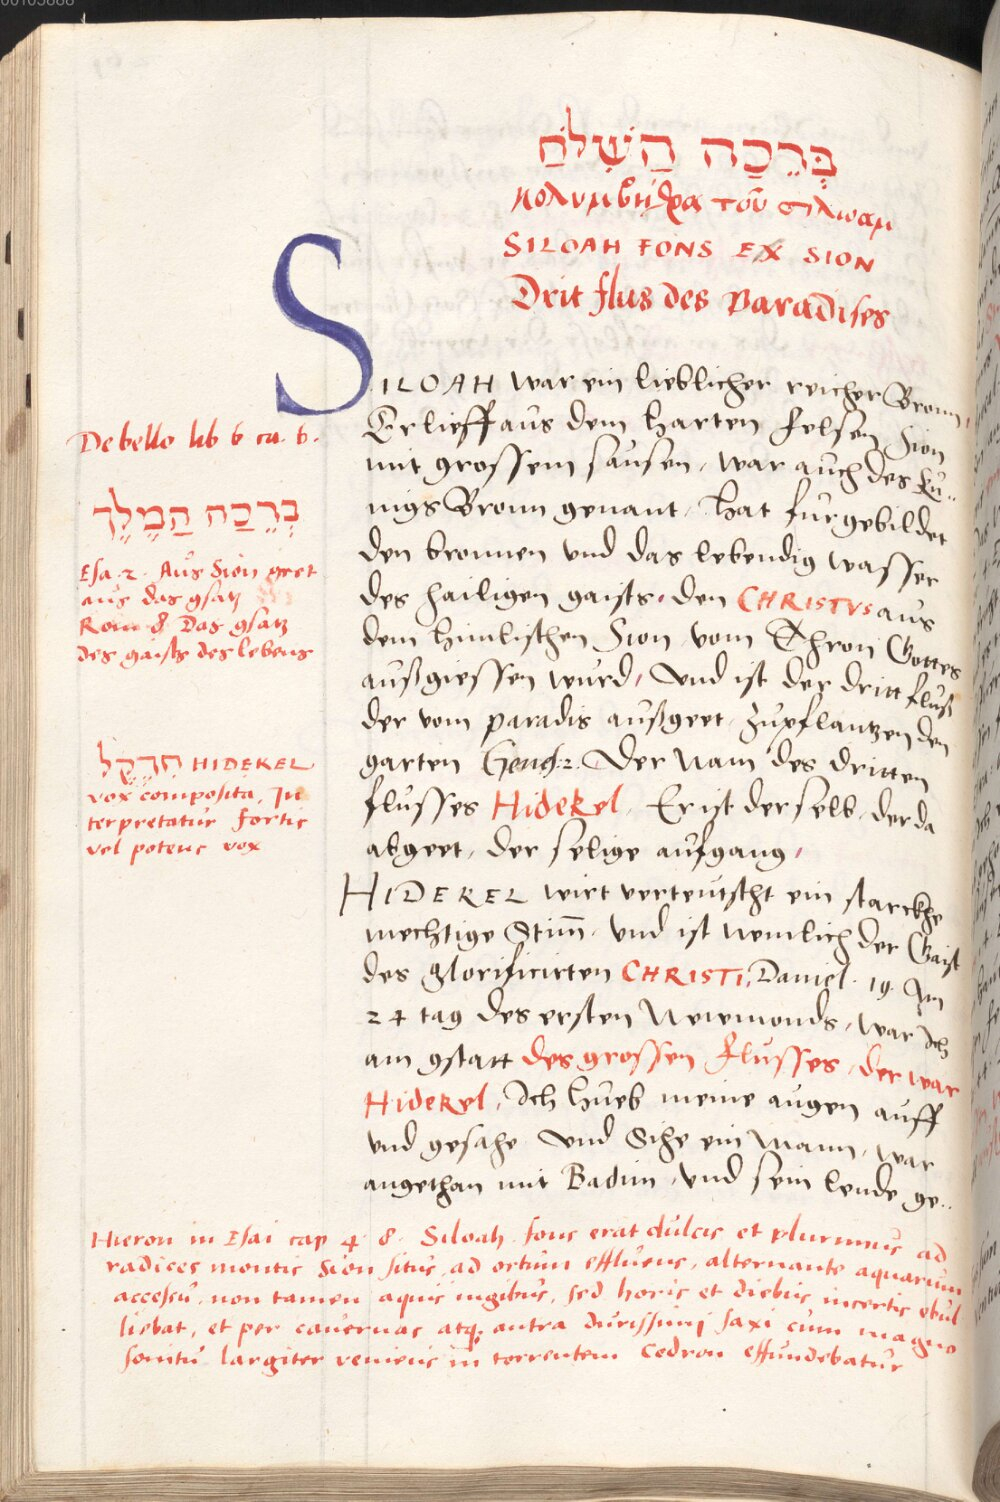 בְּרֵכַה הַשֶׁלֹחַ
κολυμβήθρα τοῦ σιλωαμ
SILOAH FONS EX SION
Drit flus des Paradises
SILOAH war ein lieblicher reicher Bronn,
Er lieff aus dem harten felsen Sion
mit grossem sausen, war auch des Ku..
nigs Bronn genant, hat furgebildet
den bronnen vnd das lebendig wasser
des hailigen gaists, den CHRISTVS aus
dem himlischen Sion vom Thron Gottes
außgiessen wurd, Vnd ist der dritt fluß
der vom paradis außgeet, zupflantzen den
garten Genes. 2. Der Nam des dritten
flusses Hidekel, Er ist der selb, der da
abgeet, der selige aufgang,
HIDEKEL wirt verteutscht ein starckhe
mechtige Stim̄, vnd ist nemlich der Gaist
des glorificirten CHRISTI, Daniel. 19. Am
24 tag des ersten Newmonds, war Ich
am gstatt des grossen flusses, der war
Hidekel, Ich hueb meine augen auff
vnd gesahe Vnd Sihe ein Mann, war
angethan mit Badim, vnd sein lende ge..
De bello lib 6 ca. 6.
בְּרֵכַה הַמֶלֶך
Esa. 2. Aus Sion geet
aus das gsatz
Rom 8 Das gsatz
des gaists des lebens
חִדֶקֶל HIDEKEL
vox composita, In
terpretatur fortis
vel potens vox
Hieron in Esai cap 4 8. Siloah fons erat dulcis et plurimus ad
radices montis Sion situs, ad ortum effluens, alternante aquarum
accessu, non tamen aquis iugibus, sed horis et diebus incertis ebul
liebat, et per cauernas atq; antra durissimi saxi cum magno
sonitu largiter veniens in torrentem Cedron effundebatur